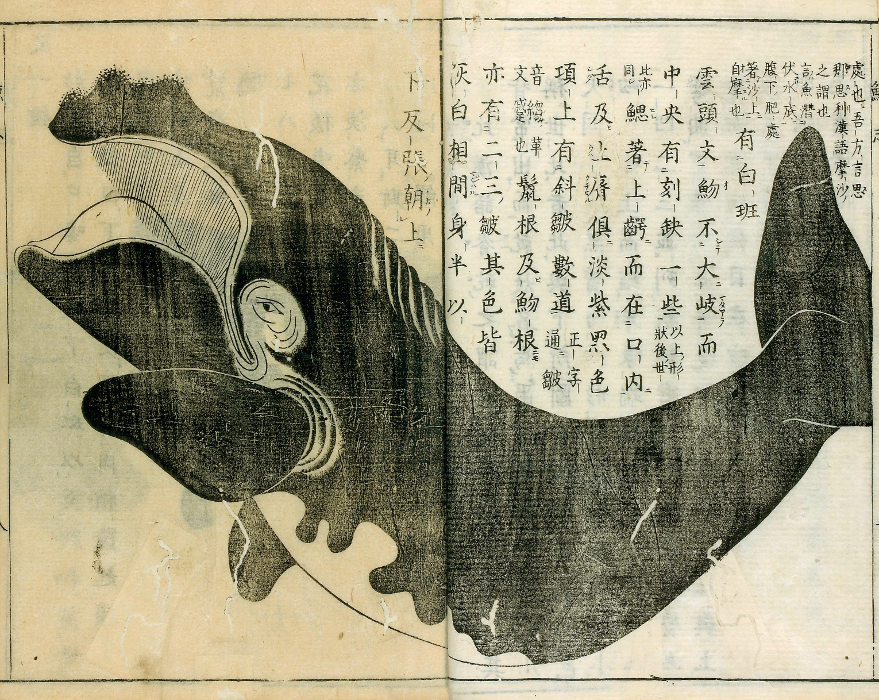 處也吾方言思
那思利漢語摩沙
之謂也
言魚潛
伏水底
腹下肥處
著沙上
自摩也
有白班
雲頭文魩不大岐而
中央有刻缺一些
以上形
狀後世
此亦
同
鰓著上齶而在口内
舌及上脣俱淡紫黑色
項上有斜皺數道
正字
通皺
音縐革
文蹙也
鬣根及魩根
亦有二三皺其色皆
灰白相間身半以
下反張朝上